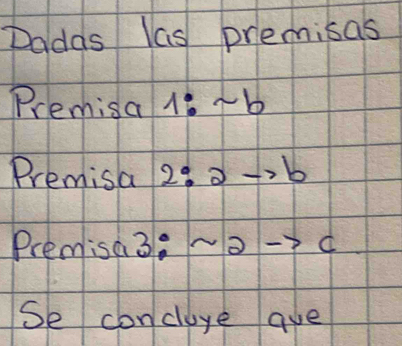 Dadas las premisas
Premisa 1: ~b
Premisa 2: a -> b
Premisa 3: ~a -> c
Se concluye que